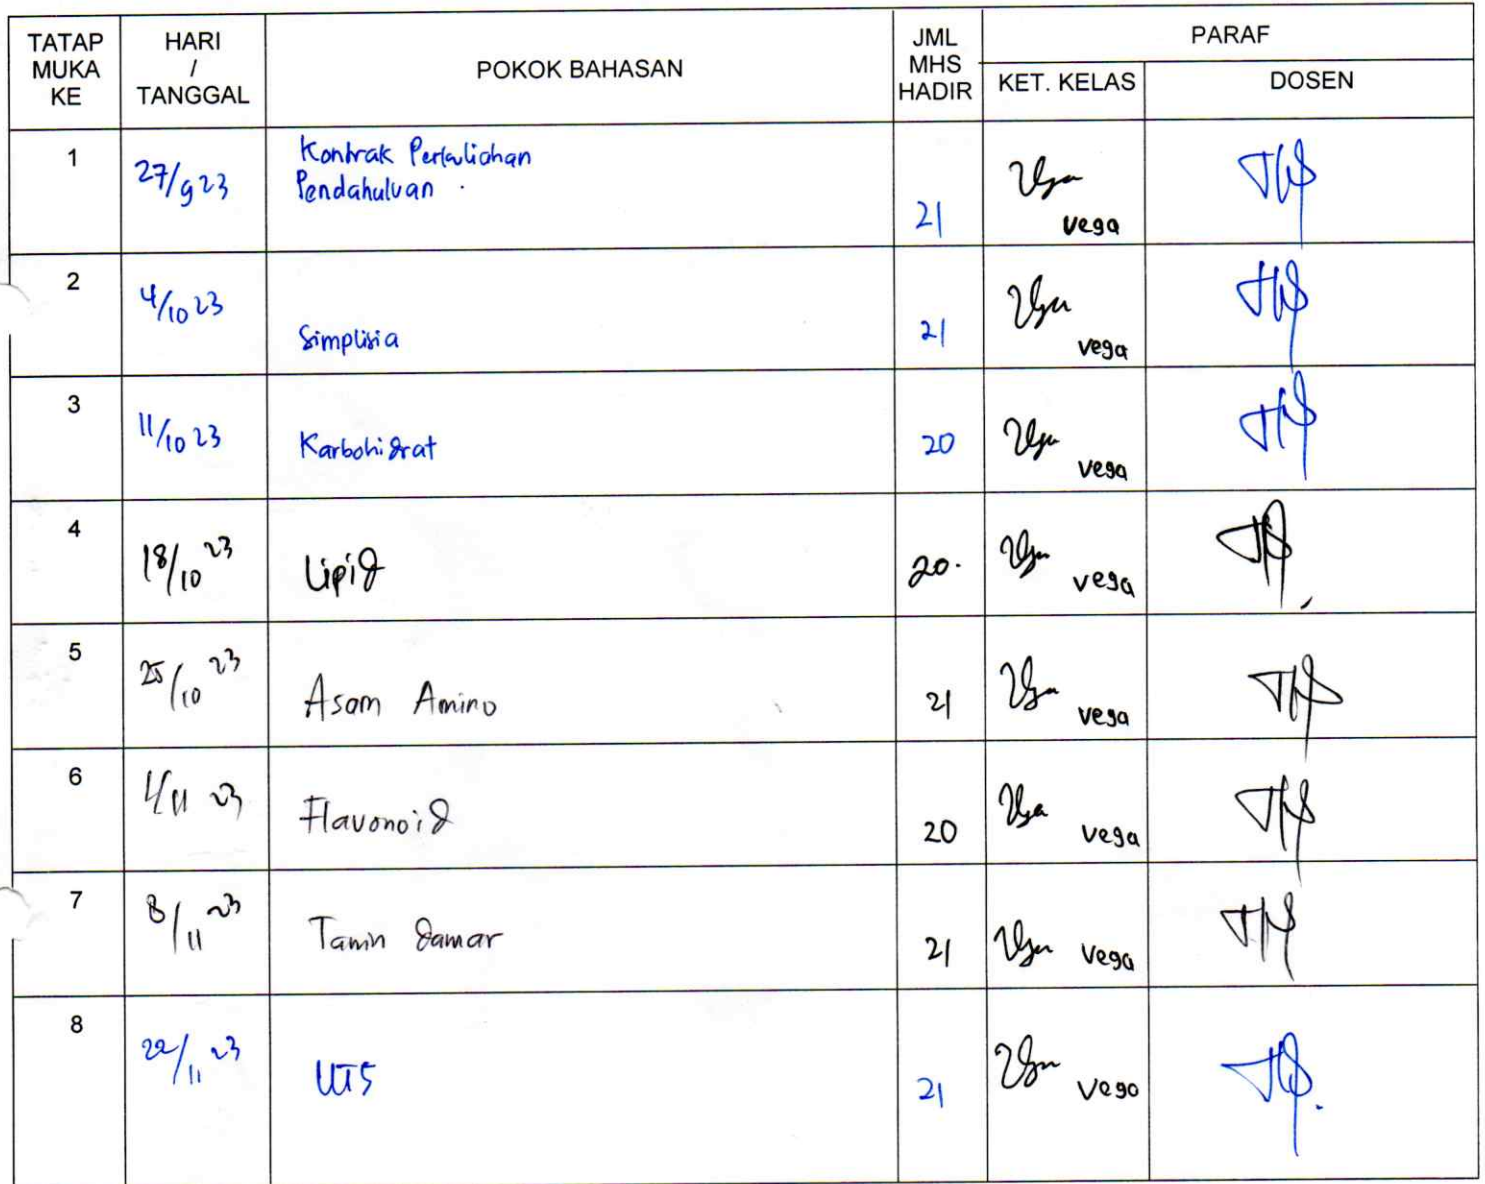 TATAP MUKA KE
HARI / TANGGAL
POKOK BAHASAN
JML MHS HADIR
PARAF
KET. KELAS
DOSEN
1
27/9 23
Kontrak Perkuliahan
Pendahuluan
21
vega
2
4/10 23
Simplisia
21
vega
3
11/10 23
Karbohidrat
20
vega
4
18/10 23
Lipid
20.
vega
5
25/10 23
Asam Amino
21
vega
6
/11 23
Flavonoid
20
vega
7
8/11 23
Tanin damar
21
vega
8
22/11 23
UTS
21
vega